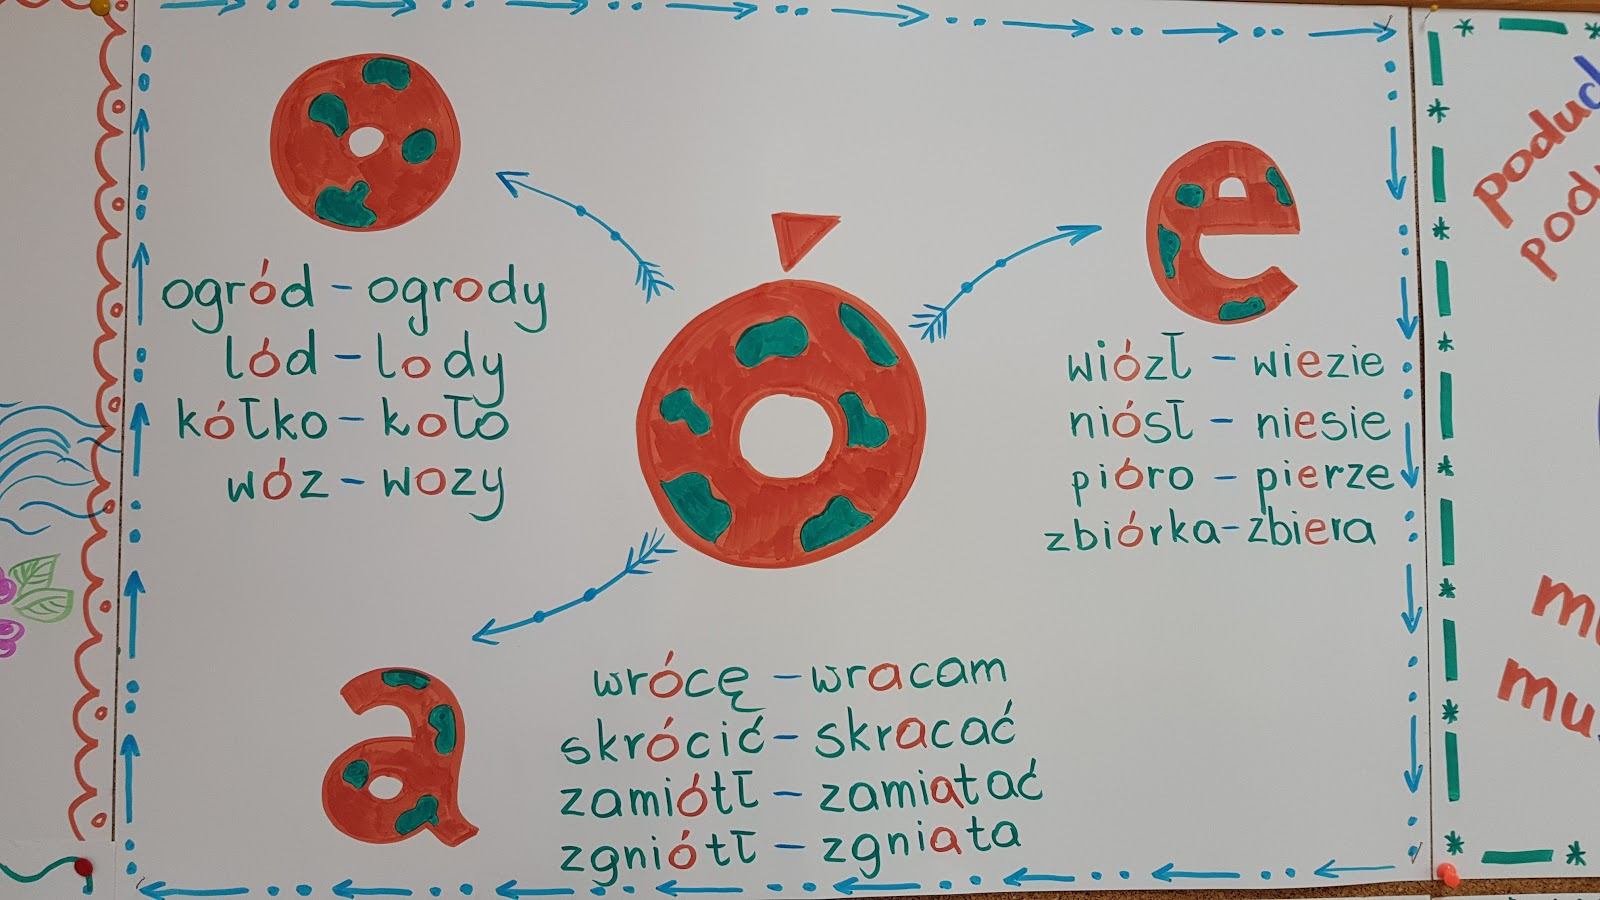 o
ogród - ogrody
lód - lody
kółko - koło
wóz - wozy
ó
e
wiózł - wiezie
niósł - niesie
pióro - pierze
zbiórka - zbiera
a
wrócę - wracam
skrócić - skracać
zamiótł - zamiatać
zgniótł - zgniata